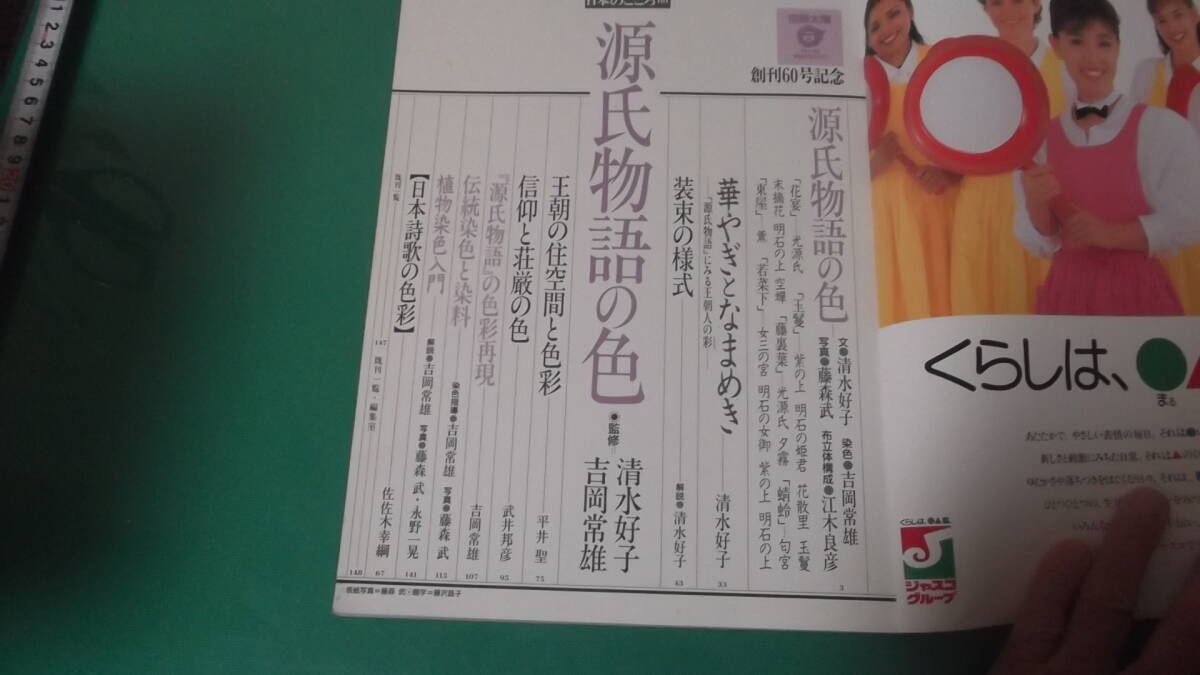 日本のこころ
創刊60号記念
源氏物語の色
文●清水好子 染色●吉岡常雄
写真●藤森武 布立体構成●江木良彦
3
「花宴」―光源氏 「玉鬘」―紫の上 明石の姫君 花散里 玉鬘
末摘花 明石の上 空蟬 「藤裏葉」―光源氏 夕霧 「蜻蛉」―匂宮
「東屋」―薫 「若菜下」―女三の宮 明石の女御 紫の上 明石の上
華やぎとなまめき
「源氏物語」にみる王朝人の彩
清水好子
33
装束の様式
解説●清水好子
43
源氏物語の色
●監修=
清水好子
吉岡常雄
王朝の住空間と色彩
平井 聖
75
信仰と荘厳の色
武井邦彦
95
『源氏物語』の色彩再現
吉岡常雄
107
伝統染色と染料
染色指導●吉岡常雄 写真●藤森 武
113
植物染色入門
解説●吉岡常雄 写真●藤森 武・永野一晃
141
【日本詩歌の色彩】
佐佐木幸綱
67
既刊一覧
148
147
既刊一覧・編集室
表紙写真=藤森 武・題字=藤沢昌子
くらしは、●▲
まる
あたたかで、やさしい表情の毎日。それは●
新しさと刺激にみちた日常。それは▲の
くらしは、●▲■
ジャスコ
グループ
1 2 3 4 5 6 7 8 9